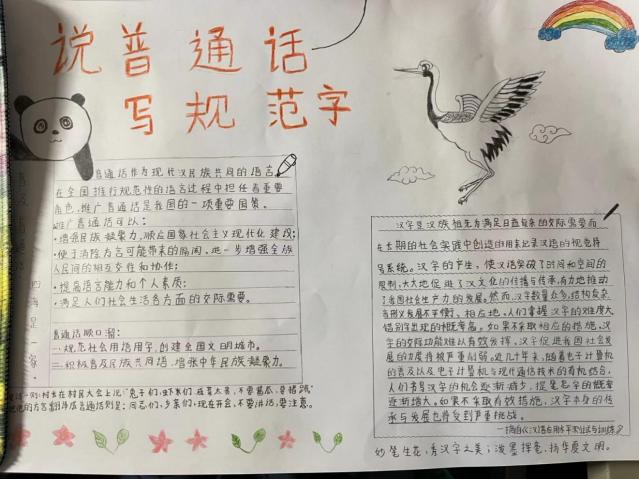 说普通话
写规范字
普通话作为现代汉民族共同的语言
在全国推行规范性的语言过程中担任着重要
角色,推广普通话是我国的一项重要国策。
推广普通话可以:
·增强民族凝聚力,顺应国家社会主义现代化建设;
·便于消除方言可能带来的隔阂,进一步增强全族
人民间的相互交往和协作;
·提高语言能力和个人素质;
·满足人们社会生活各方面的交际需要。
普通话顺口溜:
一.规范社会用语用字,创建全国文明城市。
二.积极普及民族共同语,增强中华民族凝聚力。
村长在村民大会上说:"兔子们,虾米们
同志们,乡亲们,现在开会,不要讲话,要注意。
汉字是汉族祖先为满足日益复杂的交际需要而
在长期的社会实践中创造的用来记录汉语的视觉符
号系统。汉字的产生,使汉语突破了时间和空间的
限制,大大地促进了汉文化的传播与传承,有力地推动
了我国社会生产力的发展。然而,汉字数量众多,结构复杂
音用义发展不平衡、相应地,人们掌握汉字的难度大
错别字出现的概率高。如果不采取相应的措施,汉
字的交际功能难以有效发挥,汉字促进我国社会发
展的力度将被严重削弱。近几十年来,随着电子计算机
的普及以及电子计算机与现代通信技术的有机结合,
人们书写汉字的机会逐渐减少,提笔忘字的概率
逐渐增大。如果不采取有效措施,汉字本身的传
承与发展也将受到严重挑战。
—摘自《汉语应用水平测试与训练》
妙笔生花,秀汉字之美;泼墨挥毫,扬华夏文明。